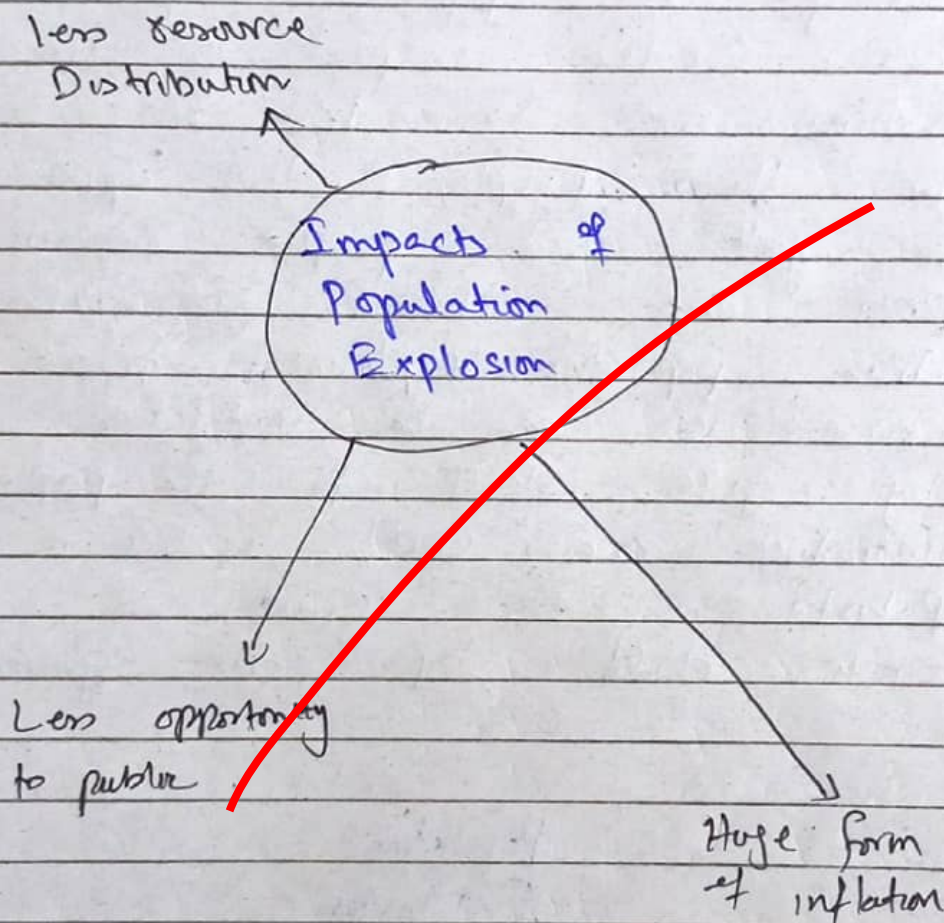 less resource
Distribution
Impacts of
Population
Explosion
Less opportunity
to public
Huge form
of inflation